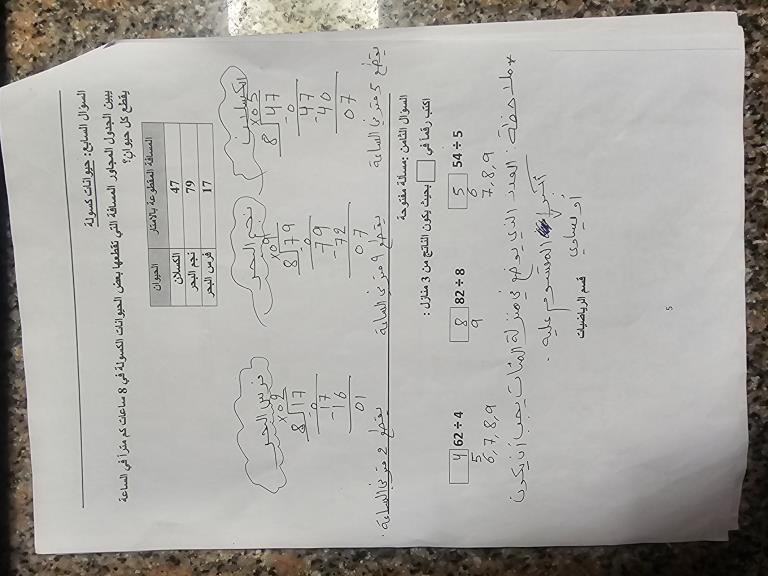 السؤال السابع: حيوانات كسولة
يبين الجدول المجاور المسافة التي تقطعها بعض الحيوانات الكسولة في 8 ساعات كم متراً في الساعة
يقطع كل حيوان؟
الحيوان المسافة المقطوعة بالامتار
الكسلان 47
نجم البحر 79
فرس البحر 17
الكسلان
×05
8 47
-0
47
-40
07
يقطع 5 متر في الساعة
نجم البحر
×09
8 79
-0
79
-72
07
يقطع 9 متر في الساعة
فرس البحر
×02
8 17
-0
17
-16
01
يقطع 2 متر في الساعة.
السؤال الثامن: مسالة مفتوحة
اكتب رقما في □ بحيث يكون الناتج من 3 منازل:
4 62 ÷ 4
5
6,7,8,9
8 82 ÷ 8
9
5 54 ÷ 5
6
7,8,9
*ملاحظة: العدد الذي يوضع في منزلة المئات يجب أن يكون
أكبر المقسوم عليه.
أو يساوي
قسم الرياضيات
5